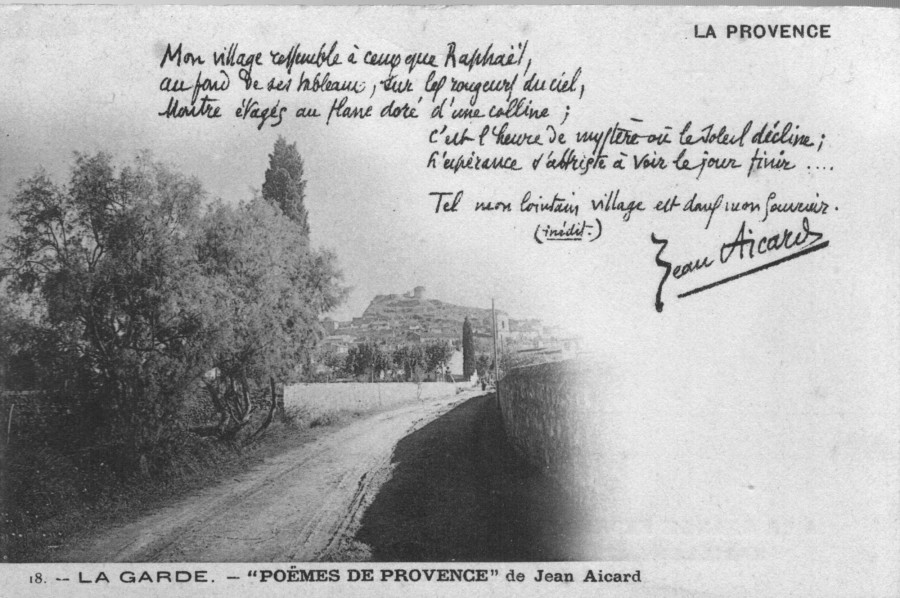 LA PROVENCE
Mon village ressemble à ceux que Raphaël,
au fond de ses tableaux, sur les rougeurs du ciel,
Montre étagés au flanc doré d'une colline ;
C'est l'heure de mystère où le soleil décline ;
L'espérance s'attriste à voir le jour finir ....
Tel mon lointain village est dans mon souvenir.
(inédit.)
Jean Aicard
18. -- LA GARDE. -- "POËMES DE PROVENCE" de Jean Aicard